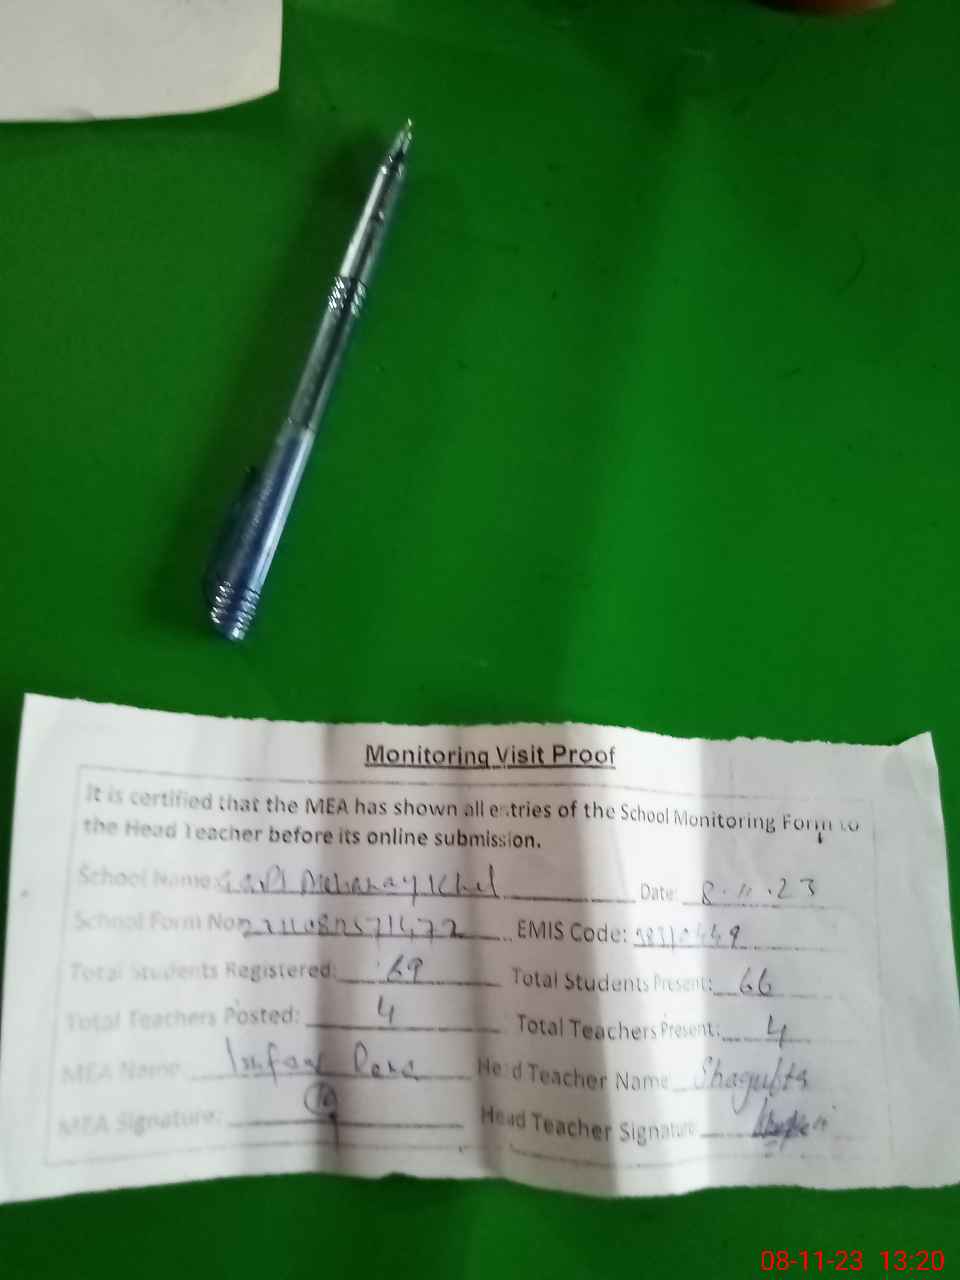 Monitoring Visit Proof
It is certified that the MEA has shown all entries of the School Monitoring Form to
the Head Teacher before its online submission.
School Name: Date: 8.11.23
School Form No: EMIS Code:
Total Students Registered: 69 Total Students Present: 66
Total Teachers Posted: 4 Total Teachers Present: 4
MEA Name: Head Teacher Name Shagufta
MEA Signature: Head Teacher Signature:
08-11-23 13:20